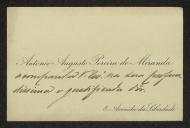 Antonio Augusto Pereira de Miranda
acompanha V. Exª na sua profun
dissima e justificada dôr.
Avenida da Liberdade